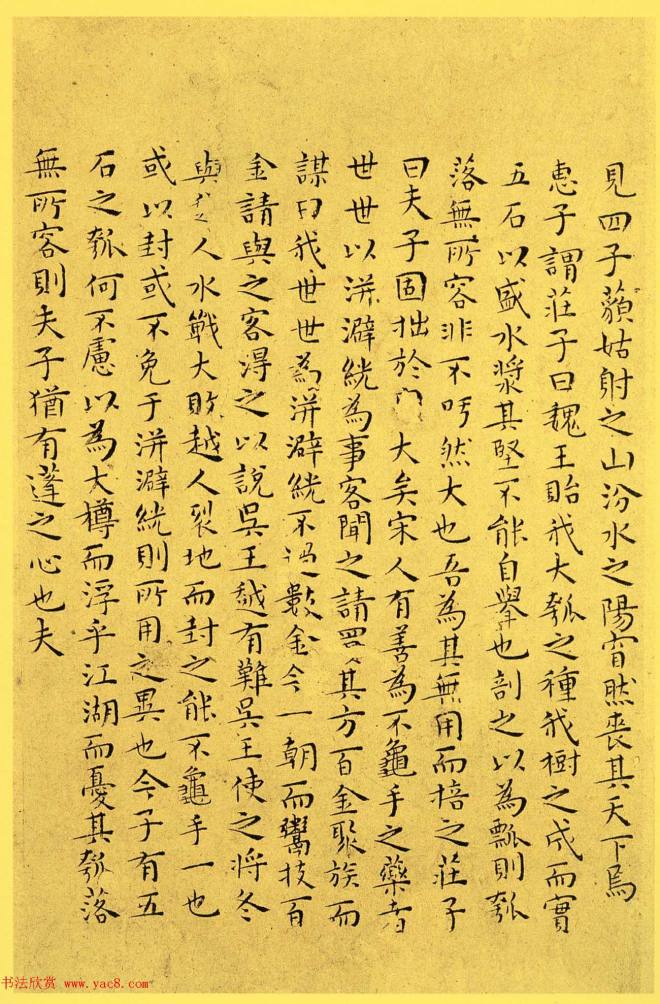 見四子藐姑射之山汾水之陽窅然喪其天下焉
惠子謂莊子曰魏王貽我大瓠之種我樹之成而實
五石以盛水漿其堅不能自舉也剖之以為瓢則瓠
落無所容非不呺然大也吾為其無用而掊之莊子
曰夫子固拙於大矣宋人有善為不龜手之藥者
世世以洴澼絖為事客聞之請買其方百金聚族而
謀曰我世世為洴澼絖不過數金今一朝而鬻技百
金請與之客得之以說吳王越有難吳王使之將冬
與越人水戰大敗越人裂地而封之能不龜手一也
或以封或不免于洴澼絖則所用之異也今子有五
石之瓠何不慮以為大樽而浮乎江湖而憂其瓠落
無所容則夫子猶有蓬之心也夫
书法欣赏 www.yac8.com